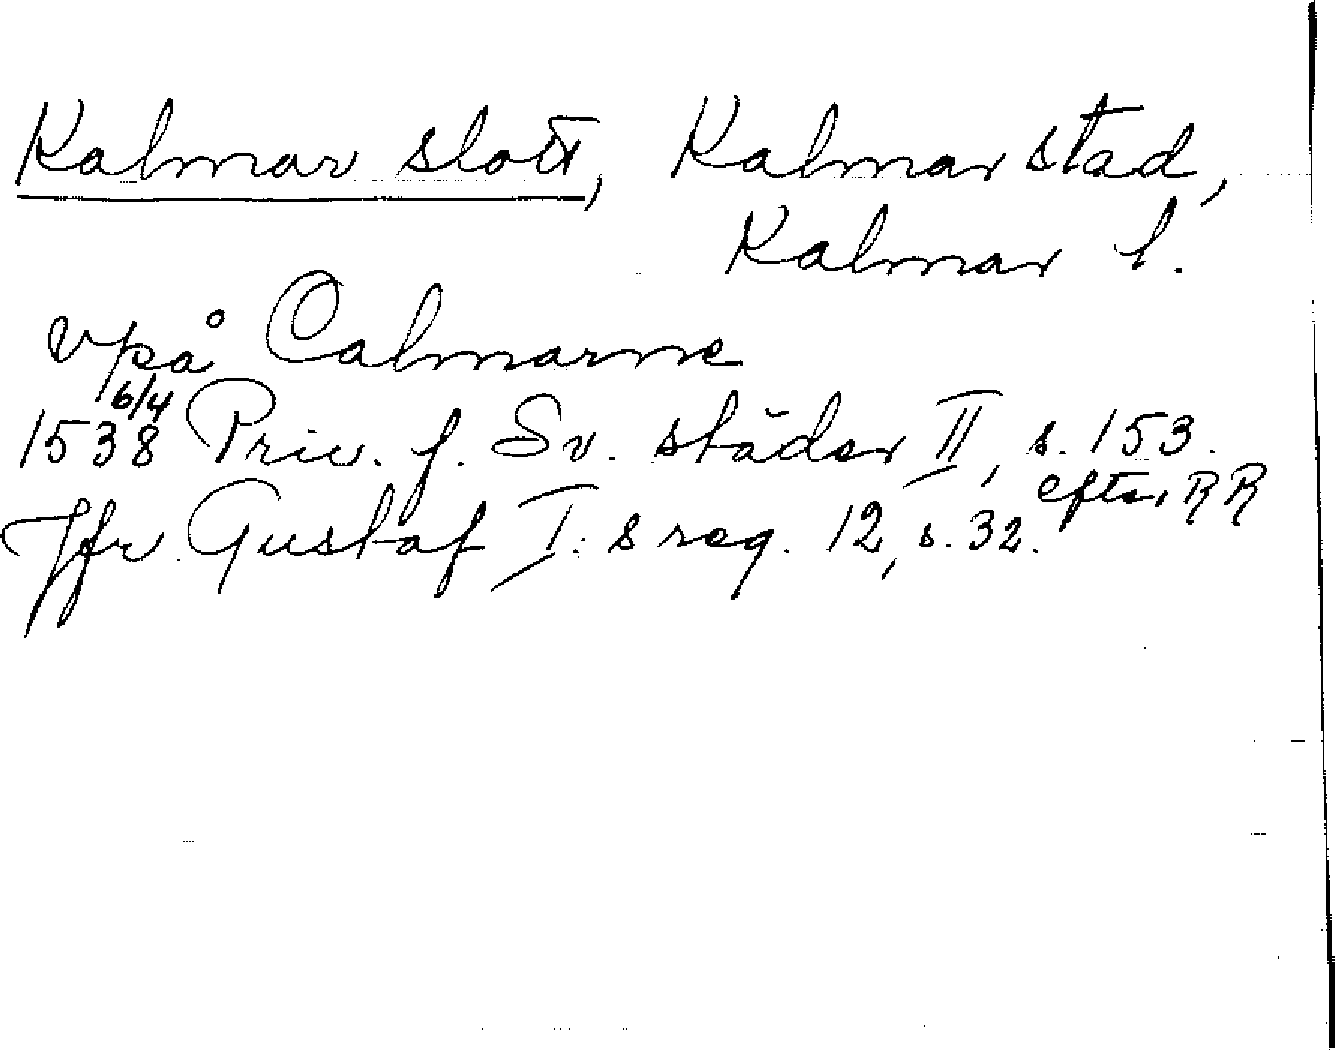 Kalmar slott, Kalmar stad,
Kalmar l.
vpå Calmarne
1538 6/4 Priv. f. Sv. städer II, s. 153.
efter RR
Jfr Gustaf I:s reg. 12, s. 32.